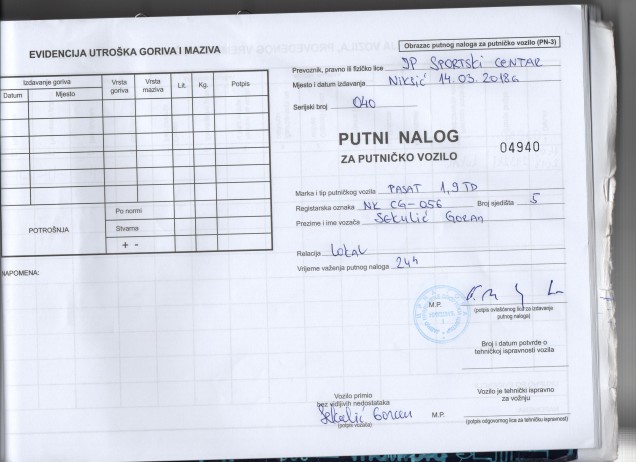 EVIDENCIJA UTROŠKA GORIVA I MAZIVA
Izdavanje goriva
Datum
Mjesto
Vrsta goriva
Vrsta maziva
Lit.
Kg.
Potpis
POTROŠNJA
Po normi
Stvarna
+ -
NAPOMENA:
Obrazac putnog naloga za putničko vozilo (PN-3)
Prevoznik, pravno ili fizičko lice JP SPORTSKI CENTAR
Mjesto i datum izdavanja Nikšić 14.03.2018G
Serijski broj 040
PUTNI NALOG
ZA PUTNIČKO VOZILO
04940
Marka i tip putničkog vozila PASAT 1,9 TD
Registarska oznaka NK CG-056 Broj sjedišta 5
Prezime i ime vozača SEKULIĆ GORAN
Relacija LOKAL
Vrijeme važenja putnog naloga 24h
M.P.
(potpis ovlašćenog lica za izdavanje
putnog naloga)
Broj i datum potvrde o
tehničkoj ispravnosti vozila
Vozilo primio
bez vidljivih nedostataka
Sekulić Goran
(potpis vozača)
Vozilo je tehnički ispravno
za vožnju
M.P.
(potpis odgovornog lica za tehničku ispravnost)